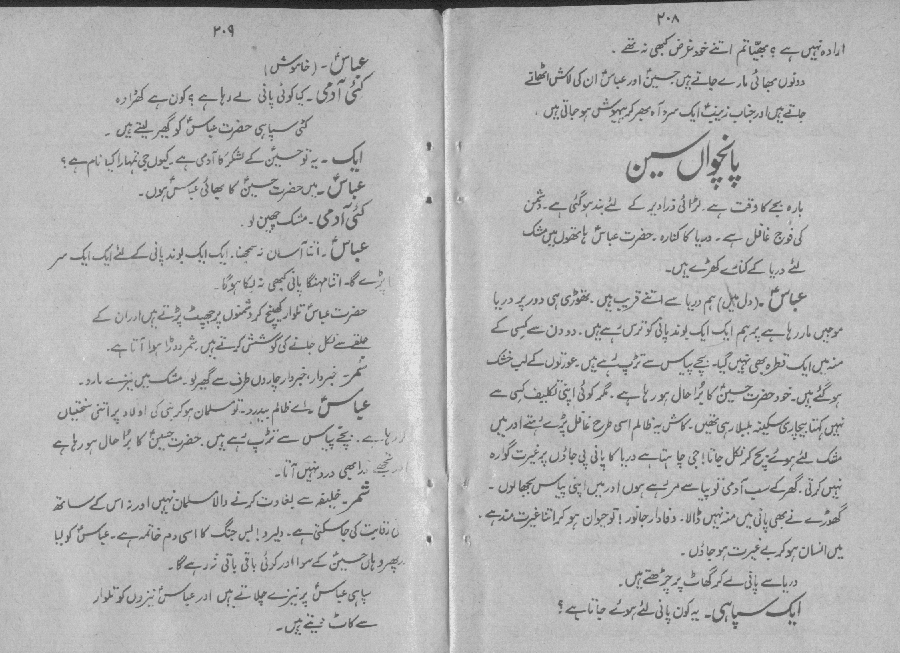 ۲۰۸
ارادہ نہیں ہے ؟ بھیّا تم اتنے خود غرض کبھی نہ تھے ۔
دونوں بھائی مارے جاتے ہیں حسینؑ اور عباسؑ ان کی لاش اٹھانے
جاتے ہیں اور جناب زینبؑ ایک سرد آہ بھر کر بیہوش ہو جاتی ہیں ۔
پانچواں سین
بارہ بجے کا وقت ہے ۔ لڑائی ذرا دیر کے لئے بند ہو گئی ہے ۔ دشمن
کی فوج غافل ہے ۔ دریا کا کنارہ ۔ حضرت عباسؑ ہاتھوں میں مشک
لئے دریا کے کنارے کھڑے ہیں ۔
عباسؑ ۔ (دل میں) ہم دریا سے اتنے قریب ہیں ۔ تھوڑی ہی دور پر دریا
موجیں مار رہا ہے پر ہم ایک ایک بوند پانی کو ترس رہے ہیں ۔ دو دن سے کسی کے
منہ میں ایک قطرہ بھی نہیں گیا ۔ بچے پیاس سے تڑپ رہے ہیں ۔ عورتوں کے لب خشک
ہو گئے ہیں ۔ خود حضرت حسینؑ کا بُرا حال ہو رہا ہے ۔ مگر کوئی اپنی تکلیف کسی سے
نہیں کہتا بیچاری سکینہ بلبلا رہی تھیں ۔ کاش یہ ظالم اسی طرح غافل پڑے رہتے اور میں
مشک لئے ہوئے بچ کر نکل جاتا ! جی چاہتا ہے دریا کا پانی پی جاؤں پر غیرت گوارہ
نہیں کرتی ۔ گھر کے سب آدمی تو پیاسے مر رہے ہوں اور میں اپنی پیاس بجھاؤں ۔
گھوڑے نے بھی پانی میں منہ نہیں ڈالا ۔ وفادار جانور ! تو حیوان ہو کر اتنا غیرت مند ہے ۔
میں انسان ہو کر بے غیرت ہو جاؤں ۔
دریا سے پانی لے کر گھاٹ پر چڑھتے ہیں ۔
ایک سپاہی ۔ یہ کون پانی لئے ہوئے جاتا ہے ؟
۲۰۹
عباسؑ ۔ (خاموش)
کئی آدمی ۔ کیا کوئی پانی لے رہا ہے ؟ کون ہے کھڑا رہ
کئی سپاہی حضرت عباسؑ کو گھیر لیتے ہیں ۔
ایک ۔ یہ تو حسینؑ کے لشکر کا آدمی ہے ۔ کیوں جی تمہارا کیا نام ہے ؟
عباسؑ ۔ میں حضرت حسینؑ کا بھائی عباسؑ ہوں ۔
کئی آدمی ۔ مشک چھین لو ۔
عباسؑ ۔ اتنا آسان نہ سمجھنا ۔ ایک ایک بوند پانی کے لئے ایک ایک سر
پڑے گا ۔ اتنا مہنگا پانی کبھی نہ بکا ہو گا ۔
حضرت عباسؑ تلوار کھینچ کر دشمنوں پر جھپٹ پڑتے ہیں اور ان کے
حلقے سے نکل جانے کی کوشش کرتے ہیں ۔ شمر دوڑا ہوا آتا ہے ۔
شمر ۔ خبردار ، خبردار چاروں طرف سے گھیر لو ۔ مشک میں نیزے مارو ۔
عباسؑ ۔ اے ظالم بیدرد ۔ تو مسلمان ہو کر نبی کی اولاد پر اتنی سختیاں
رہا ہے ۔ بچے پیاس سے تڑپ رہے ہیں ۔ حضرت حسینؑ کا بُرا حال ہو رہا ہے
اور تجھے ذرا بھی درد نہیں آتا ۔
شمر ۔ خلیفہ سے بغاوت کرنے والا مسلمان نہیں اور نہ اس کے ساتھ
رعایت کی جا سکتی ہے ۔ دلیرو ! بس جنگ کا اسی دم خاتمہ ہے ۔ عباسؑ کو لیا
پھر وہاں حسینؑ کے سوا اور کوئی باقی باقی نہ رہے گا ۔
سپاہی عباسؑ پر نیزے چلاتے ہیں اور عباسؑ نیزوں کو تلوار
سے کاٹ دیتے ہیں ۔